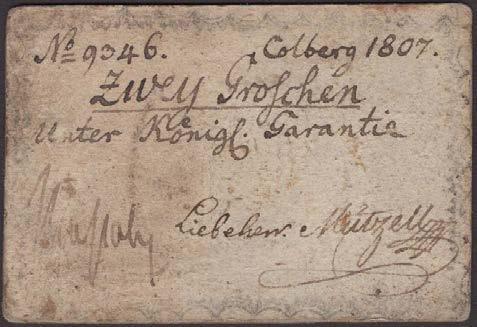 No 9346. Colberg 1807.
Zwey Groschen
Unter Königl. Garantie
Liebeherr. Mützell